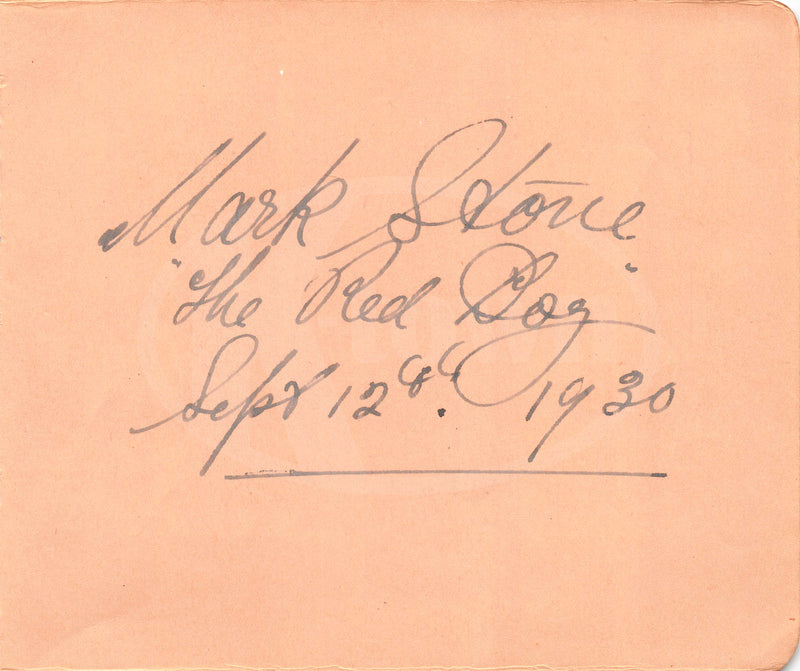 Mark Stone
"The Red Dog"
Sept 12th. 1930